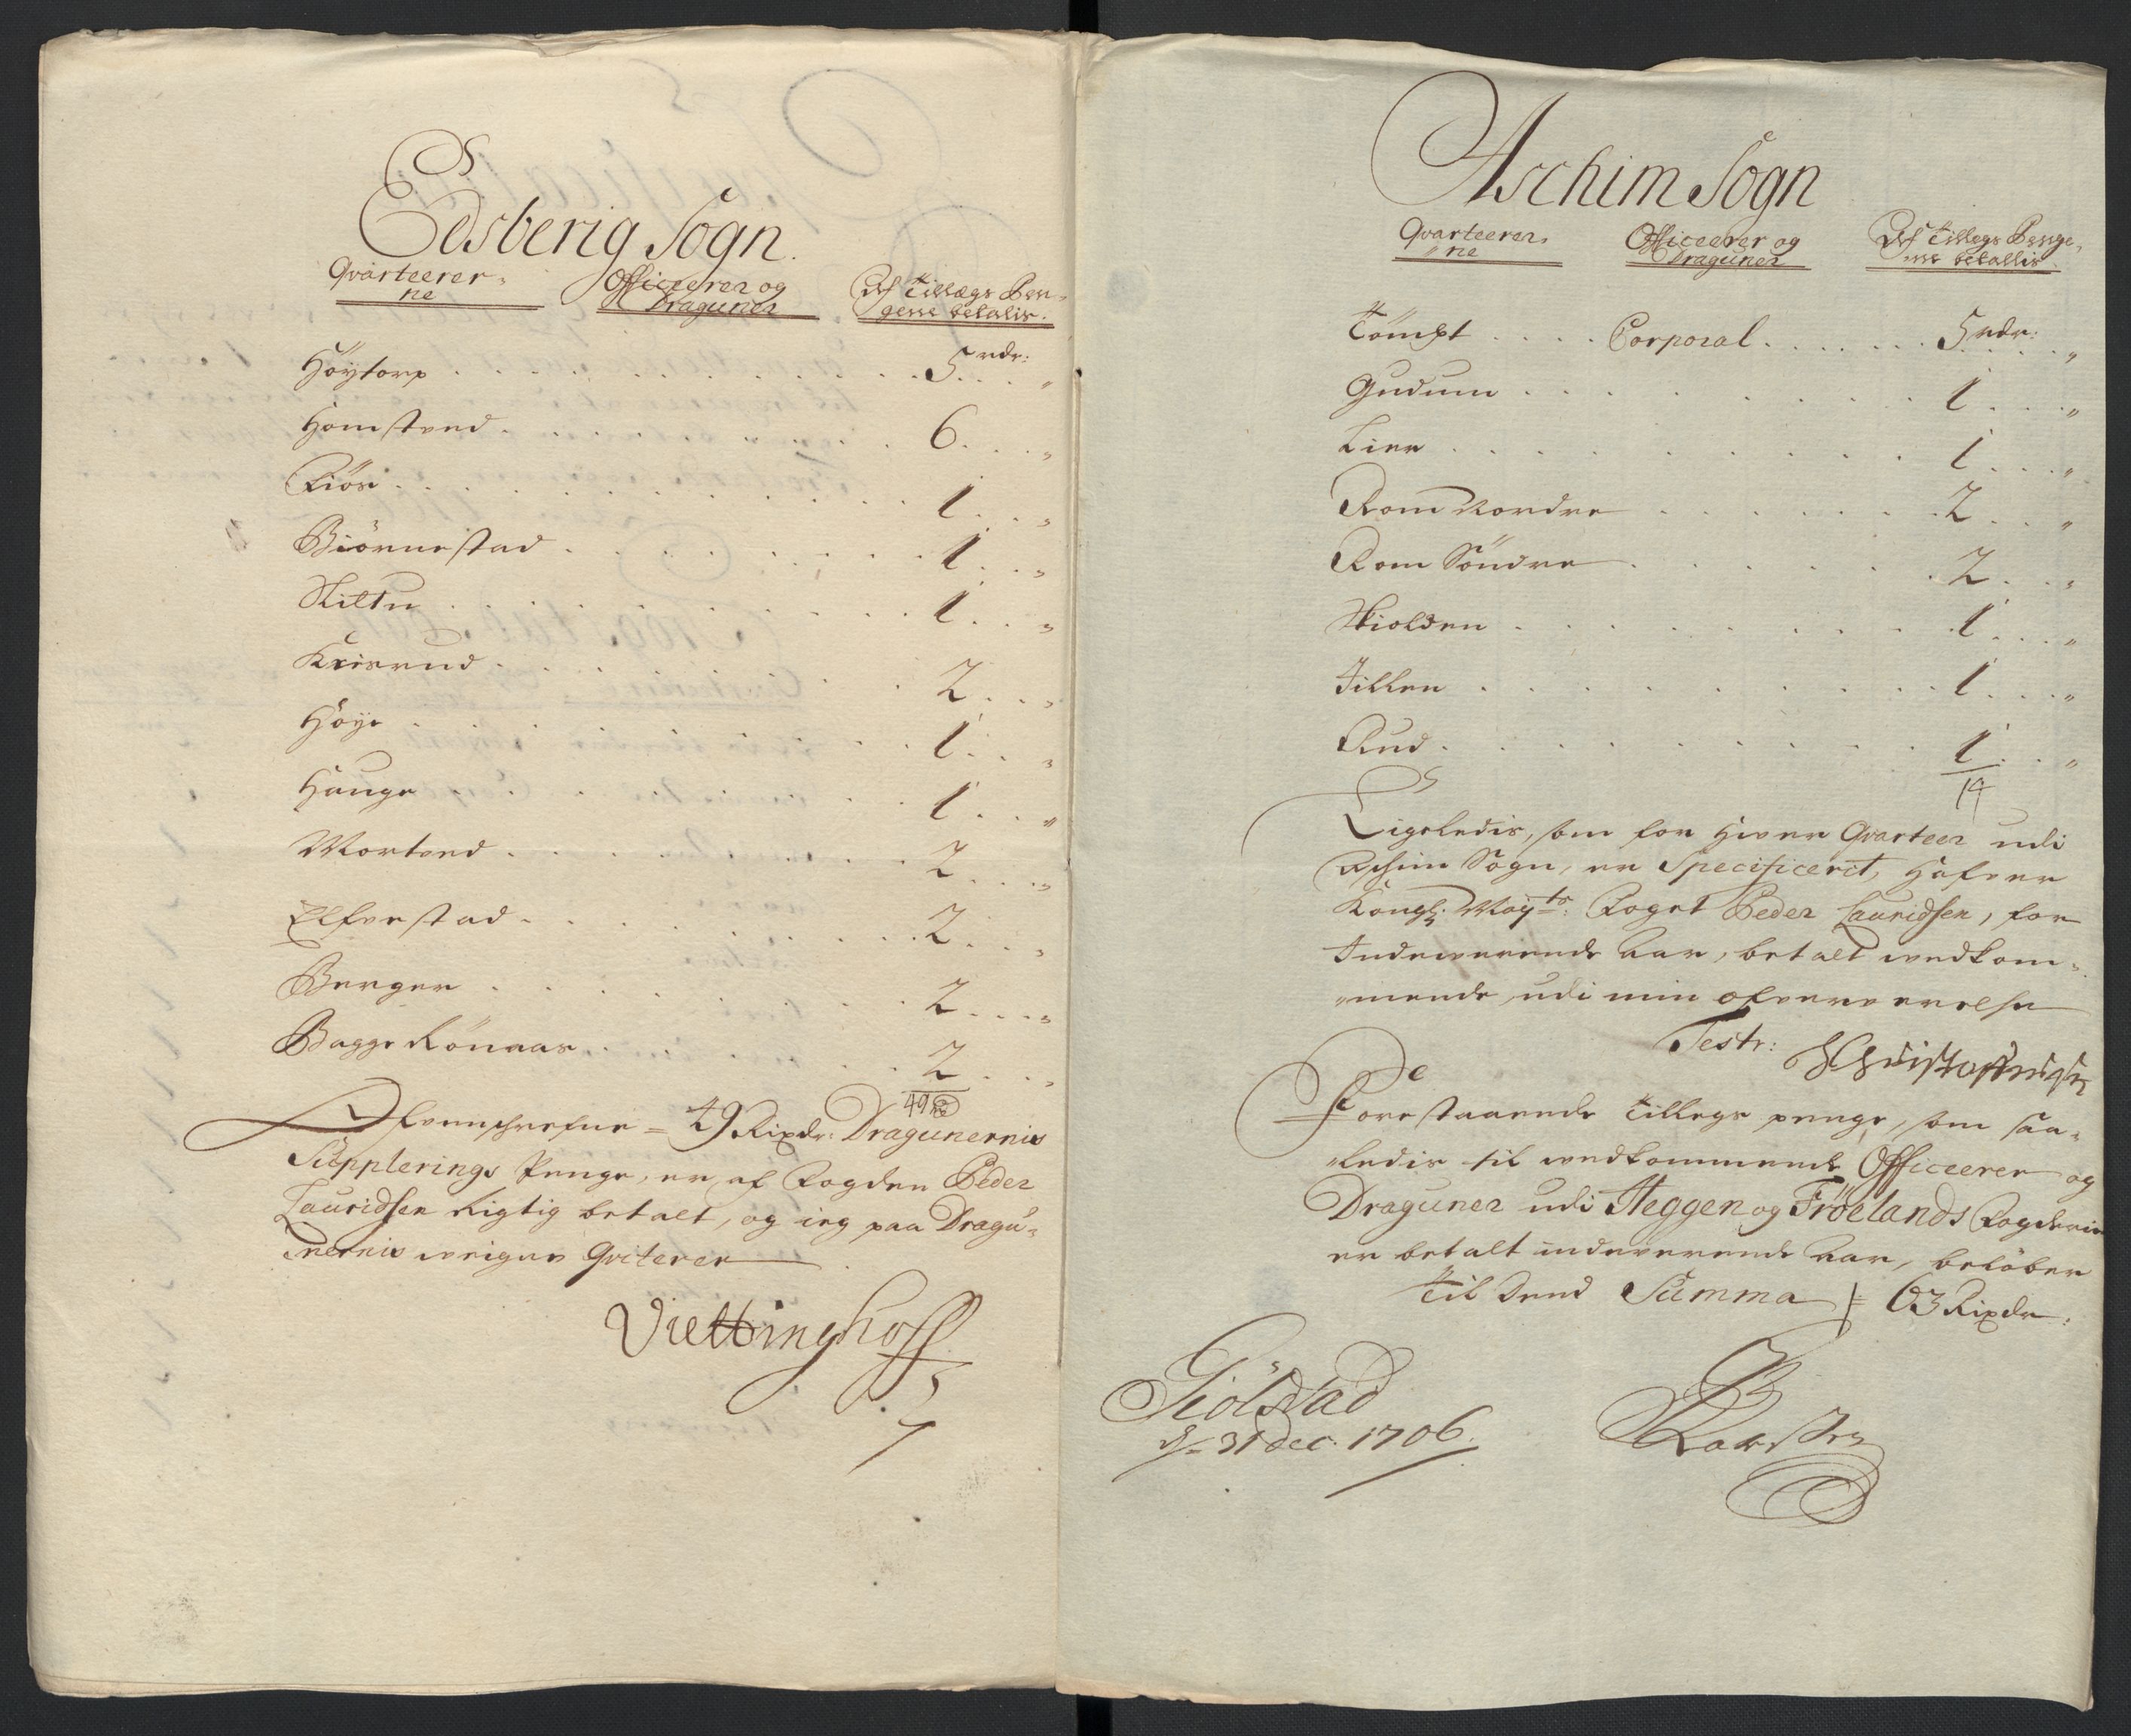 Edsberig Sogn.
Qvarteerer-
ne
Officeerer og
Draguner
Af Tillægs Pen-
gene betalis.
Höytorp . . . 5 rdr: „
Homstved . . . 6 . . „
Riös . . . 1 . . „
Biörnestad . . . 1 . . „
Kiltu . . . 1 . . „
Krisrud . . . 2 . . „
Höye . . . 1 . . „
Hauge . . . 1 . . „
Mortved . . . 2 . . „
Elfvestad . . . 2 . . „
Berger . . . 2 . . „
Bagge Rönaas . . . 2 . . „
49
Ofvenschrefne = 49 Rixdr: Dragunernis
Supplerings Penge, er af Fogden Peder
Lauridsen Rigtig betalt, og ieg paa Dragu-
nernis weigne Qviterer
Viettinghoff
Aschim Sogn
Qvarteerer-
ne
Officeerer og
Draguner
Af Tillegs Penge-
ne betallis
Tömpt . . . Corporal . . . 5 rdr: „
Gudum . . . 1 . . „
Lier . . . 1 . . „
Rom Nordre . . . 2 . . „
Rom Söndre . . . 2 . . „
Skiolden . . . 1 . . „
Jillen . . . 1 . . „
Rud . . . 1 . . „
14
Ligeledis, som for hver Qvarteer udi
Aschim Sogn, er Specificerit, hafver
Kongl: Mayts: Foget Peder Lauridsen, for
Indeverende Aar, betalt vedkom-
mende, udi min ofververelse
Testr:
Forestaaende Tillegs penge, som saa-
ledis til vedkommende Officeerer og
Draguner udi Heggen og Fröelands Fogderie
er betalt indeverende Aar, belöber
Til Dend Summa 63 Rixdr.
Giölstad
d 31 Dec: 1706.